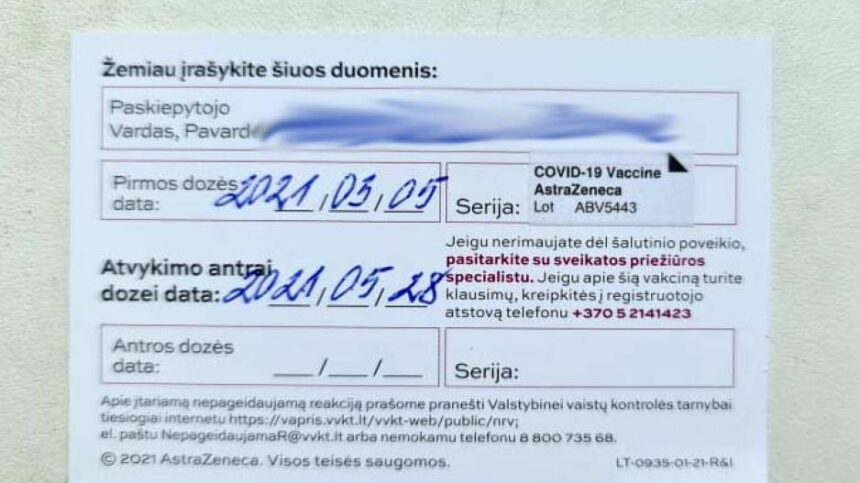 Žemiau įrašykite šiuos duomenis:
Paskiepytojo
Vardas, Pavard
Pirmos dozės
data: 2021/03/05
Serija:
COVID-19 Vaccine
AstraZeneca
Lot ABV5443
Atvykimo antrai
dozei data: 2021/05/28
Jeigu nerimaujate dėl šalutinio poveikio,
pasitarkite su sveikatos priežiūros
specialistu. Jeigu apie šią vakciną turite
klausimų, kreipkitės į registruotojo
atstovą telefonu +370 5 2141423
Antros dozės
data: __/__/__
Serija:
Apie įtariamą nepageidaujamą reakciją prašome pranešti Valstybinei vaistų kontrolės tarnybai
tiesiogiai internetu https://vapris.vvkt.lt/vvkt-web/public/nrv;
el. paštu NepageidaujamaR@vvkt.lt arba nemokamu telefonu 8 800 735 68.
© 2021 AstraZeneca. Visos teisės saugomos.
LT-0935-01-21-R&I